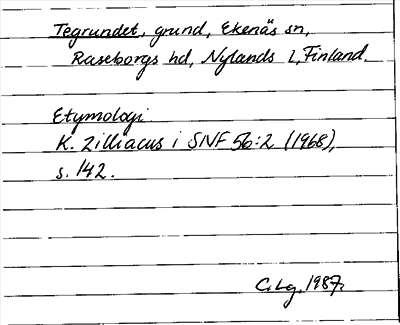 Tegrundet, grund, Ekenäs sn,
Raseborgs hd, Nylands l, Finland.
Etymologi
K. Zilliacus i SNF 56:2 (1968),
s. 142.
C. Lg. 1987.